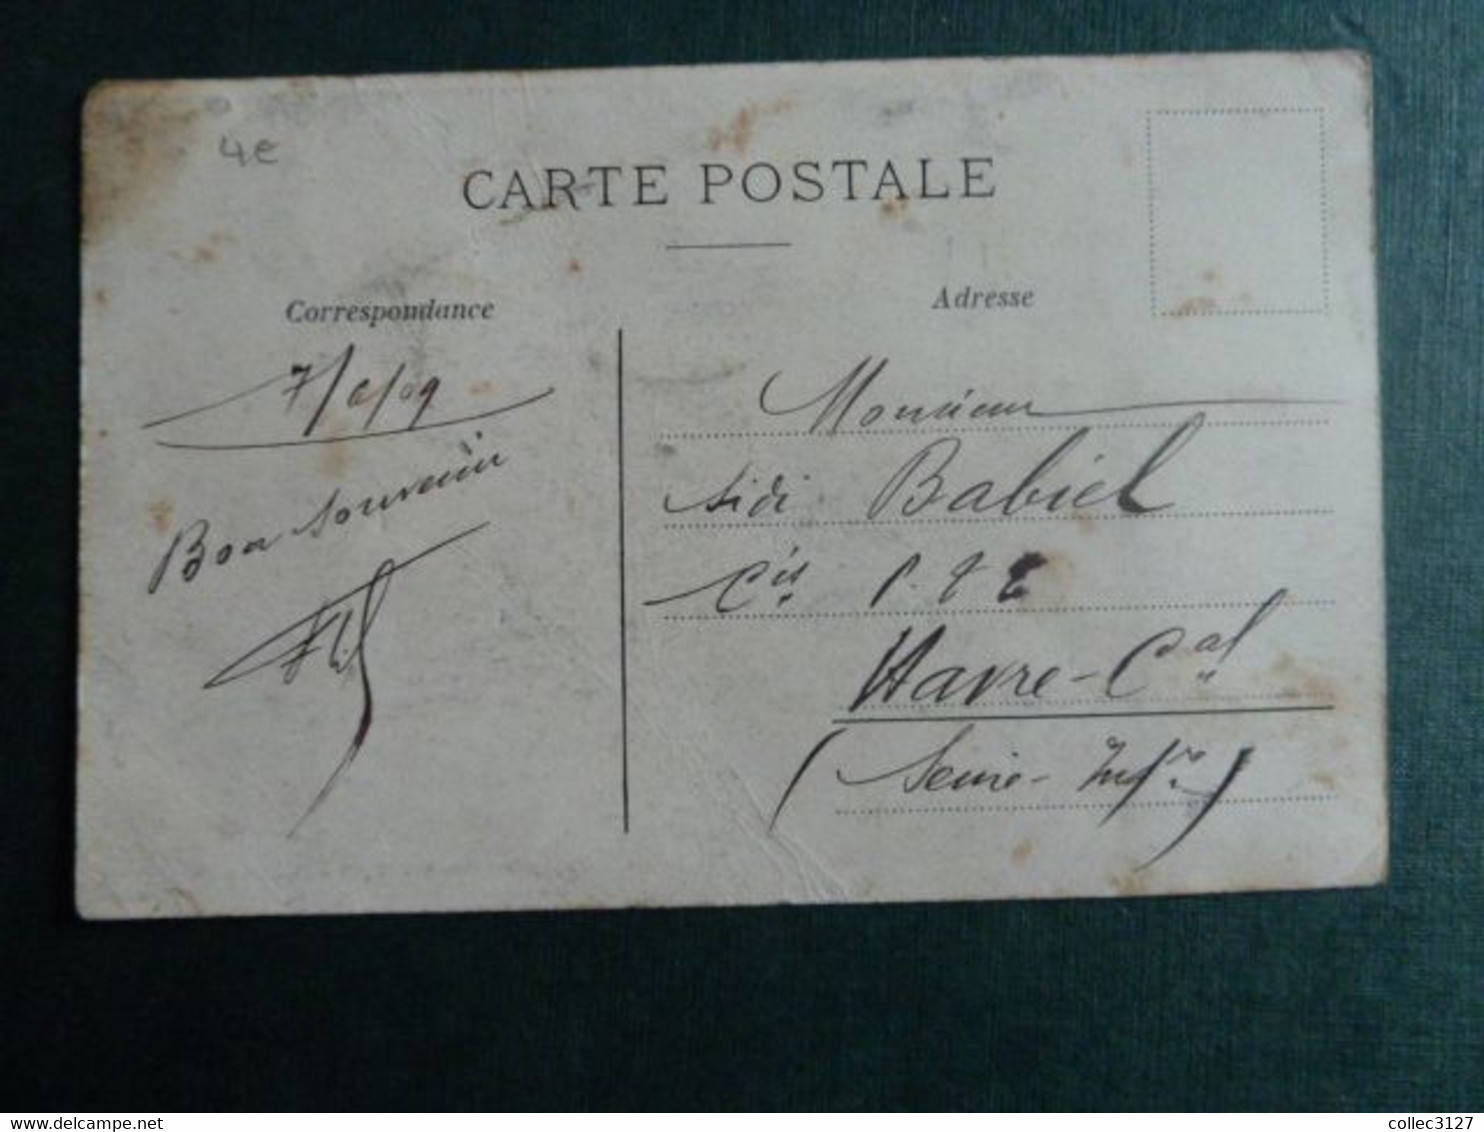 4e
CARTE POSTALE
Correspondance
Adresse
7/6/09
Bon souvenir
Monsieur
Sidi Babiel
Cis P. T E
Havre-Cal
(Seine-Infre)
Delcampe.net
collec3127